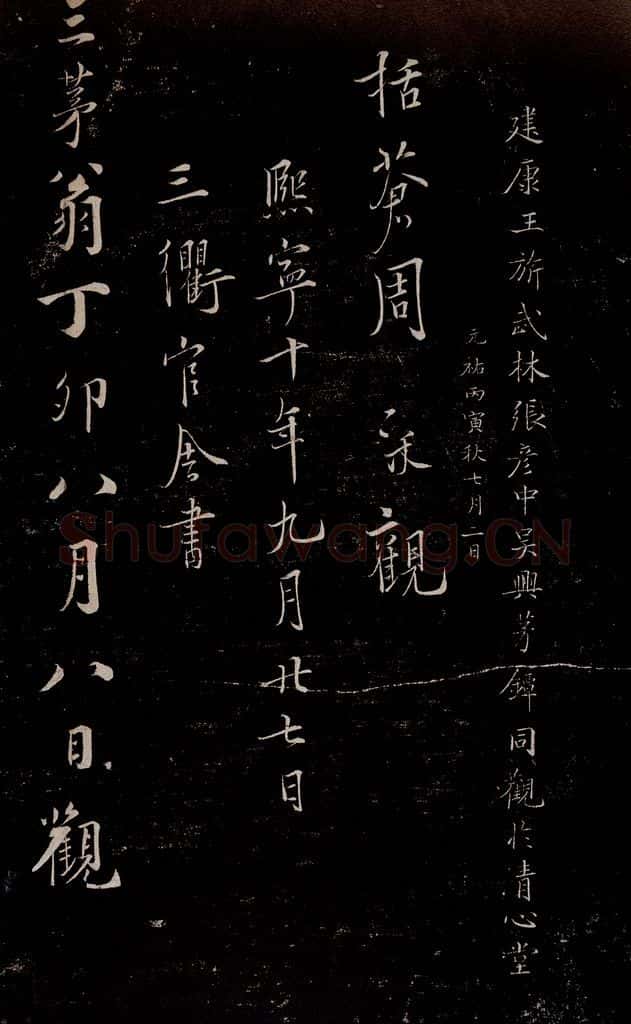 建康王旂武林張彥中吳興茅鐔同觀於清心堂
元祐丙寅秋七月一日
括蒼周 采觀
熙寧十年九月廿七日
三衢官舍書
三茅翁丁卯八月八日觀
Shufawang.CN